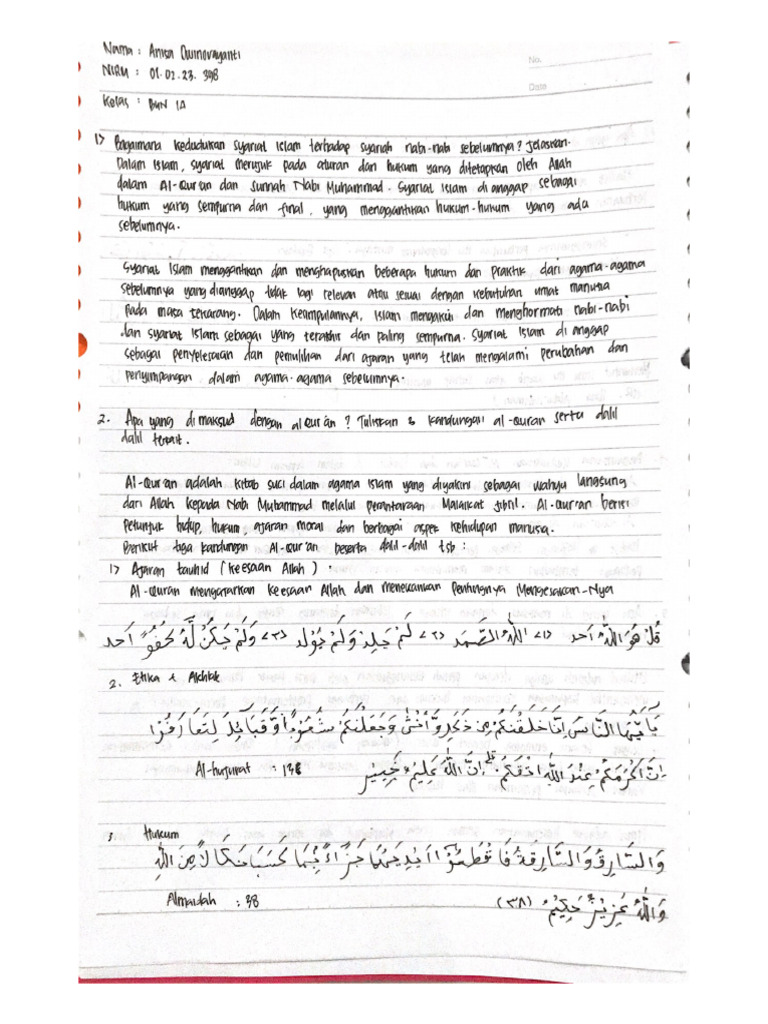 Nama : Anisa Quinorayanti
No.
NIRM : 01.02.23.398
Date
Kelas : BUN 1A
1> Bagaimana kedudukan syariat Islam terhadap syariah nabi-nabi sebelumnya? Jelaskan.
Dalam Islam, syariat merujuk pada aturan dan hukum yang ditetapkan oleh Allah
dalam Al-Qur'an dan sunnah Nabi Muhammad. Syariat Islam di anggap sebagai
hukum yang sempurna dan final, yang menggantikan hukum-hukum yang ada
sebelumnya.
Syariat Islam menggantikan dan menghapuskan beberapa hukum dan praktik dari agama-agama
sebelumnya yang dianggap tidak lagi relevan atau sesuai dengan kebutuhan umat manusia
pada masa sekarang. Dalam kesimpulannya, Islam mengakui dan menghormati nabi-nabi
dan syariat Islam sebagai yang terakhir dan paling sempurna. Syariat Islam di anggap
sebagai penyelesaian dan pemulihan dari ajaran yang telah mengalami perubahan dan
penyimpangan dalam agama-agama sebelumnya.
2. Apa yang di maksud dengan al Qur'an ? Tuliskan 3 kandungan al-Quran serta dalil
dalil terkait.
Al-Qur'an adalah kitab suci dalam agama Islam yang diyakini sebagai wahyu langsung
dari Allah kepada Nabi Muhammad melalui perantaraan Malaikat Jibril. Al-Qur'an berisi
petunjuk hidup, hukum, ajaran moral dan berbagai aspek kehidupan manusia.
Berikut tiga kandungan Al-Qur'an beserta dalil-dalil tsb :
1> Ajaran tauhid (keesaan Allah) :
Al-Quran mengajarkan keesaan Allah dan menekankan pentingnya Mengesakan-Nya
قُلْ هُوَ اللّٰهُ اَحَد <١> اَللّٰهُ الصَّمَد <٢> لَمْ يَلِد وَلَمْ يُوْلَد <٣> وَلَمْ يَكُنْ لَّهُ كُفُوًا اَحَد
2. Etika & Akhlak
يٰٓاَيُّهَا النَّاسُ اِنَّا خَلَقْنٰكُمْ مِّنْ ذَكَرٍ وَّاُنْثٰى وَجَعَلْنٰكُمْ شُعُوْبًا وَّقَبَاۤىِٕلَ لِتَعَارَفُوْا
اِنَّ اَكْرَمَكُمْ عِنْدَ اللّٰهِ اَتْقٰىكُمْ ۗ اِنَّ اللّٰهَ عَلِيْمٌ خَبِيْرٌ
Al-hujurat :
3. Hukum
وَالسَّارِقُ وَالسَّارِقَةُ فَاقْطَعُوْٓا اَيْدِيَهُمَا جَزَاۤءً بِمَا كَسَبَا نَكَالًا مِّنَ اللّٰهِ
وَاللّٰهُ عَزِيْزٌ حَكِيْمٌ (٣٨)
Almaidah : 38